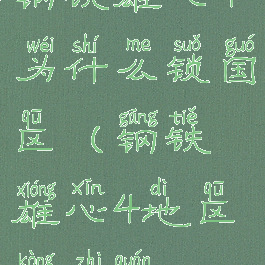 wéi shí me suǒ guó
为什么锁国
qū gāng tiě
区(钢铁
xióng xīn dì qū
雄心4地区
kòng zhì quán